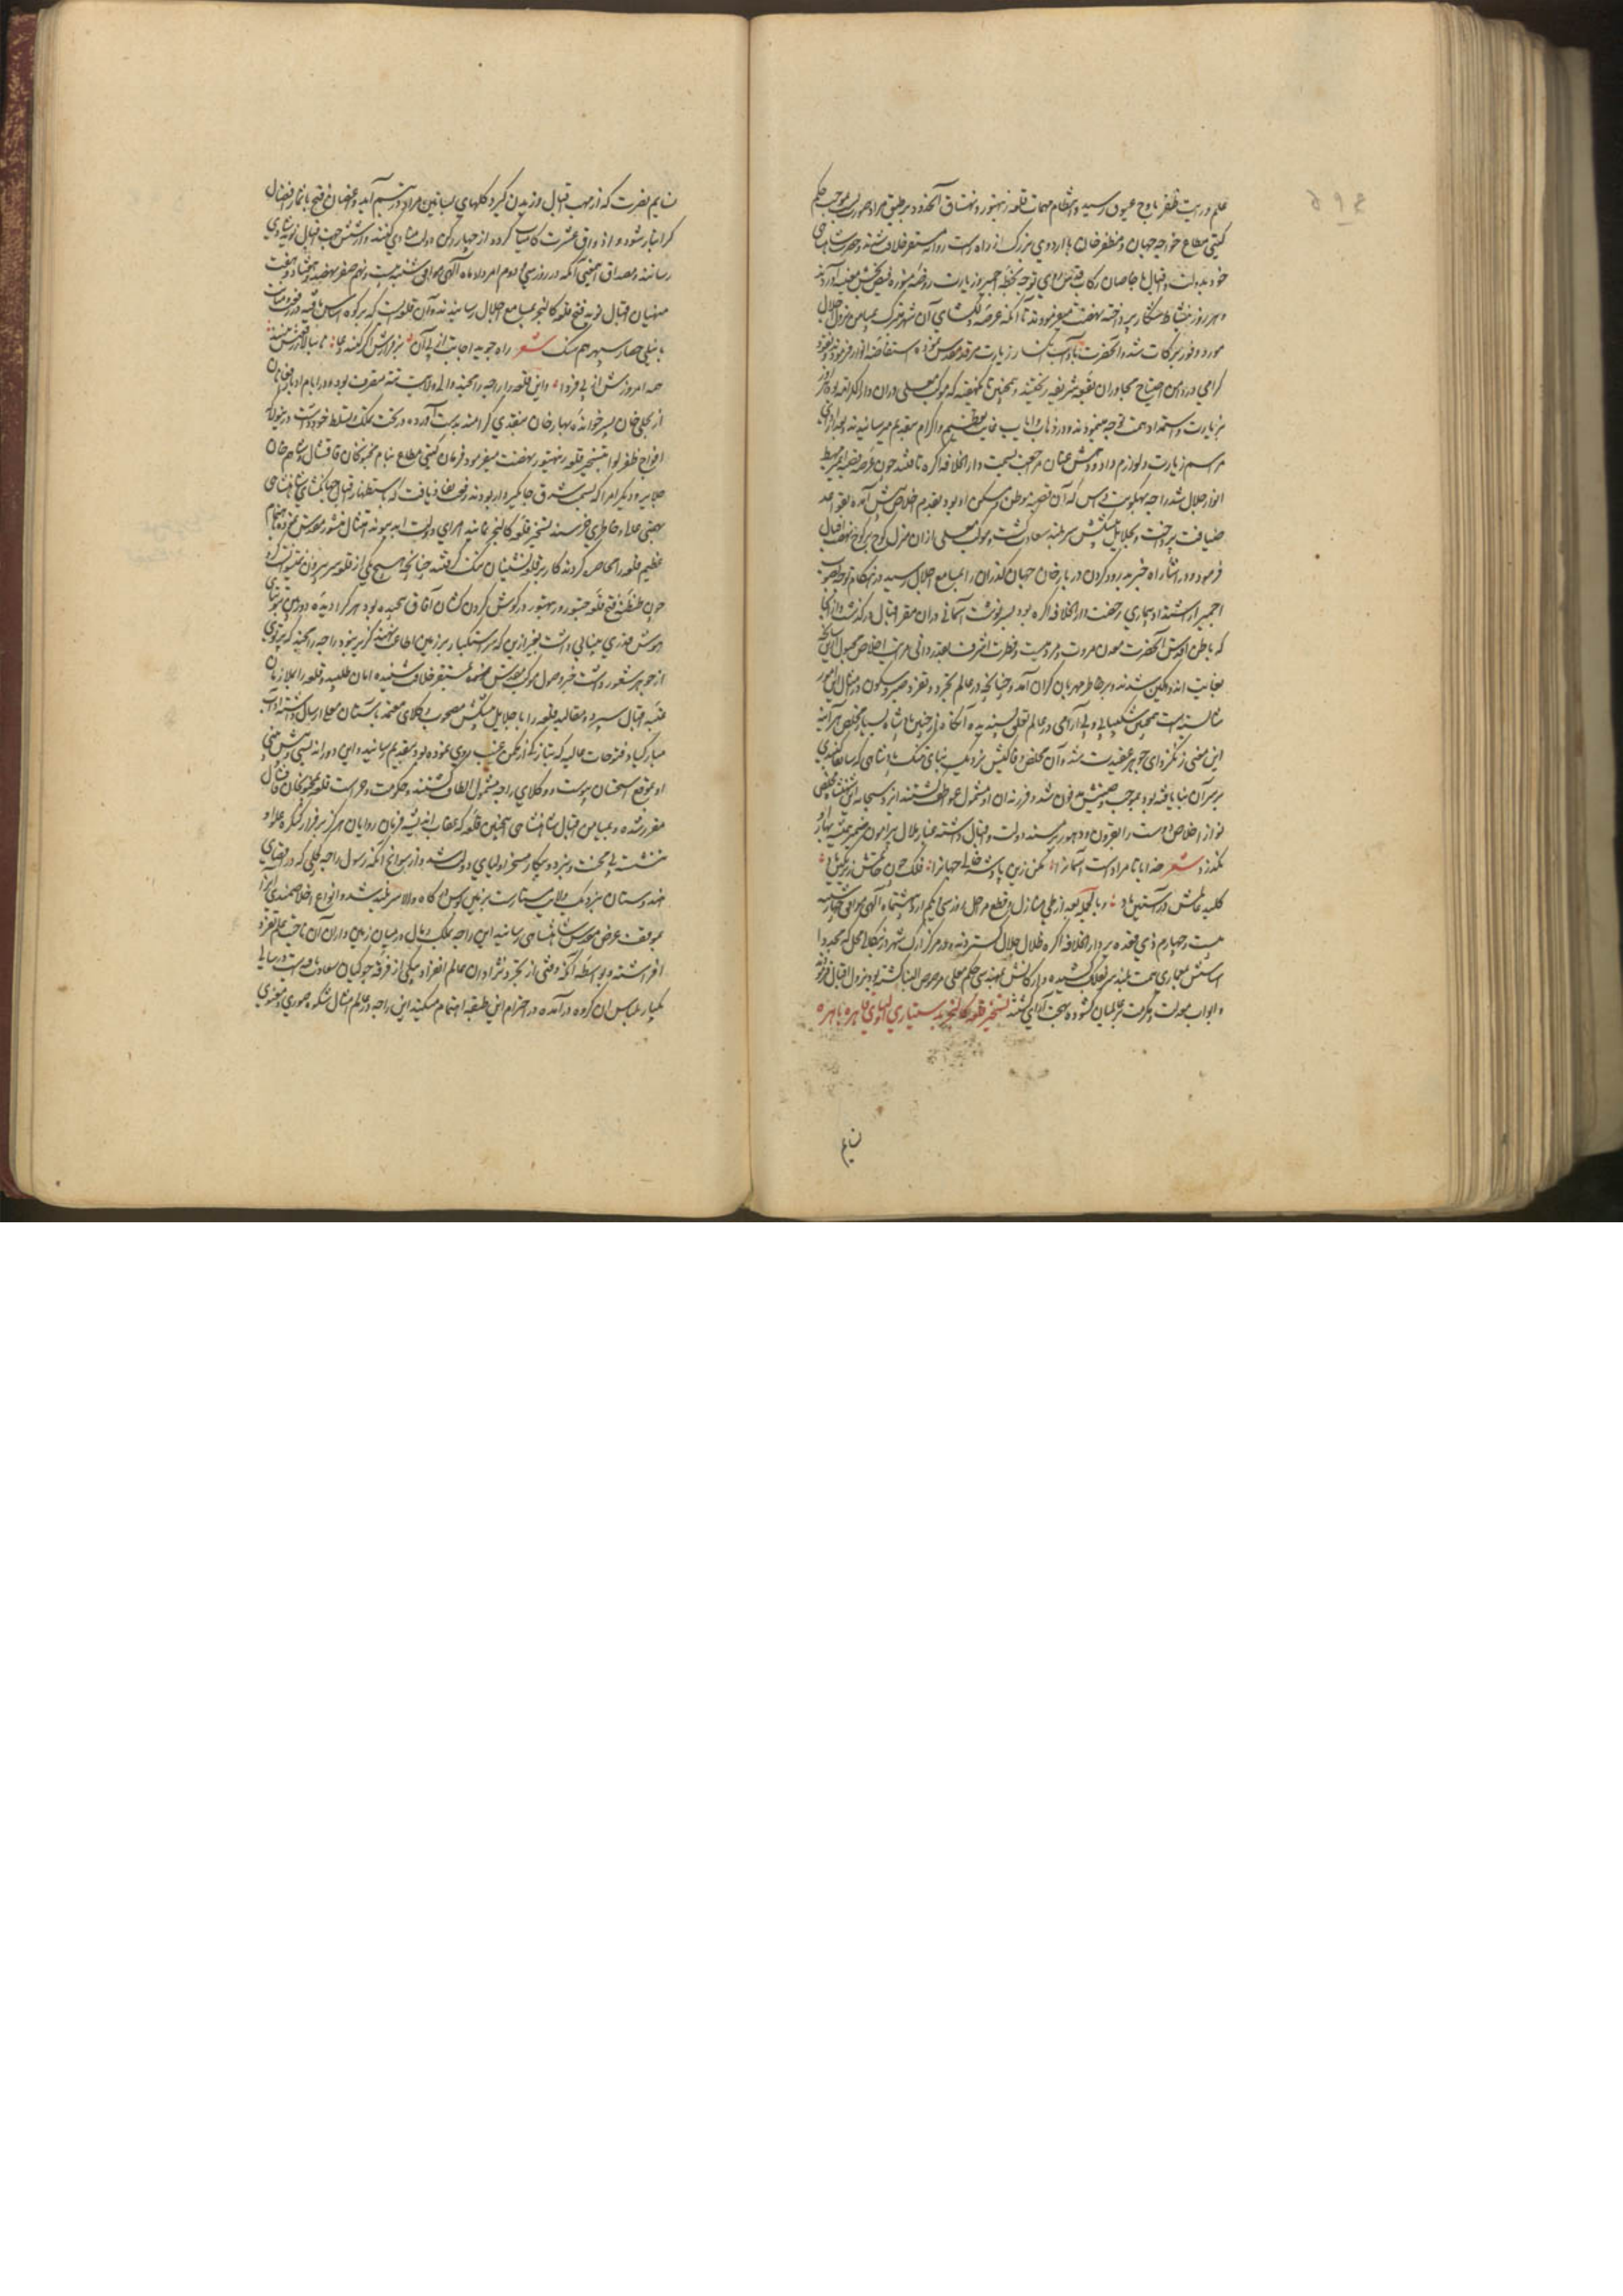 علم و رایت ظفر باوج عیوق رسید و انتظام مهمات قلعه رنتهبور و نهضت آنحدود بر طبق مراد صورت بموجب حکم
گیتی مطاع خواجه جهان و مظفر خان با اردوی بزرگ از راه راست روانه مستقر خلافت شدند و حضرت شاهنشاهی
خود بدولت و اقبال با خاصان رکاب توجه بخطه اجمیر و زیارت روضه منوره فیض بخش
و هر روز بنشاط شکار پرداخته نهضت میفرمودند تا آنکه عرصه دلگشای آن شهر متبرک بمیامن نزول اجلال
مورد وفور برکات شد و آنحضرت بآداب زیارت مرقد مقدس نموده استفاضه انوار فرمودند و نقود
گرامی در دامن احتیاج مجاوران بقعه شریفه ریختند و همچنین تا یکهفته که موکب معلی دران دار البرکه بود هر روز
بزیارت و استمداد همت توجه مینمودند و در ذهاب و ایاب غایت تعظیم و اکرام بتقدیم میرسانیدند و بعد از ادای
مراسم زیارت و لوازم داد و دهش عنان مراجعت بسمت دار الخلافه اگره تافتند چون عرصه قصبه انبیر مهبط
انوار جلال شد راجه بهگونت داس که آن قصبه وطن و مسکن او بود بقدم اخلاص پیش آمده بقواعد
ضیافت پرداخت و بجلایل پیشکش سربلند سعادت گشت و موکب معلی ازان منزل کوچ بر کوچ نهضت اقبال
فرمود و در اثناء راه خبر پدرود کردن دربار خان جهان گذران را بمسامع جلال رسید در هنگام توجه بصوب
اجمیر از اشتداد بیماری رخصت دار الخلافه اگره بود بسرنوشت آسمانی دران مقر اقبال درگذشت و ازانجا
که باطن اقدس آنحضرت معدن مروت و مردمیست و فطرت اشرف بقدردانی مراتب اخلاص مجبول ازین سانحه
بغایت اندوهگین شدند و بر خاطر مهربان گران آمد و چنانچه در عالم تجرد و تفرد صبر و سکون در مثال این امور
شایسته است همچنین شکیبایی و بی آرامی در عالم تعلق پسندیده آنگاه از چنین پادشاه بسیار مخلص هر آینه
این معنی زنگ زدای جوهر عقیدت شد و آن مخلص وفاکیش نزدیک بپای سگ شاهنشاهی که سابقا گنبدی
بر سر آن بنا یافته بود بموجب وصیتش مدفون شد و فرزندان او مشمول عواطف گشتند ایزد سبحانه این شاهنشاه مخلص
نواز اخلاص دوست را بقرون و دهور بر مسند دولت و اقبال داشته غبار ملال پیرامون ضمیر همیشه بهار او
نگذرد شعر خدایا تا مدار است آسمانرا : مکن زین پادشه خالی جهانرا : فلک چون خاتمش زیر نگین باد :
کلید عالمش در آستین باد : و بالجمله بعد از طی منازل و قطع مراحل روز سی و یکم اردی بهشت ماه الهی موافق چهارشنبه
بیست و چهارم ذی قعده بر دار الخلافه اگره ظلال جلال گستردند و در مرکز ارک شهر در بنگالی محل که مجددا
اساسش بمعماری همت بلند سر بفلک کشیده و ارکانش بمهندسی حکم معلی مرصوص البنا گشته بود نزول اقبال فرموده
و ابواب معدلت و مکرمت بر عالمیان گشوده بهجت آرای گشتند تسخیر قلعه کالنجر بدستیاری اقبال قاهره باهره
نسایم
نسایم نصرت که از مهب اقبال وزیدن گیرد گلهای بساتین مراد در تبسم آید و اغصان فتح باثمار افضال
گرانبار شود و اذواق عشرت کامیاب گردد از چهار رکن دولت منادی کنند و از شش جهت اقبال نوید شادی
رسانند و مصداق اینمعنی آنکه در روز سی و دوم امرداد ماه الهی موافق شنبه بیست و نهم صفر نهصد و هفتاد و هفت
منهیان اقبال نوید فتح قلعه کالنجر بمسامع اجلال رسانیدند و آن قلعه ایست که بر کوه اساس یافته در رفعت و متانت
با نیلی حصار سپهر هم سنگ شعر راه جوید اجابت از پی آن : بر فرازش اگر کنند دعا : تا ببالا رسند
همه امروزش از پی فردا : و این قلعه را راجه رامچند والی ولایت پته متصرف بود و در ایام ادبار افغانان
از بجلی خان پسر خوانده بهار خان بنقدی گرامند بدست آورده در تحت تملک و تسلط خود داشت درینولا که
افواج ظفر لوا بتسخیر قلعه رنتهبور نهضت میفرمود فرمان گیتی مطاع بنام مجنون خان قاقشال و شاهم خان
جلایر و دیگر امرا که بسمت شرق جاگیردار بودند شرف نفاذ یافت که باستظهار اقبال جهانگشای شاهنشاهی
بهمتی علا و خاطری خرسند بتسخیر قلعه کالنجر نمایند امرای دولت ابد پیوند امتثال منشور مقدس نموده باهتمام
عظیم قلعه را محاصره کردند و کار بر قلعه نشینان تنگ گرفتند چنانچه هیچ یکی از قلعه سر بیرون نمیتوانست کرد
چون طنطنه فتح قلعه چیتور و رنتهبور در گوش گردن کشان آفاق پیچیده بود هر که را دیده دوربین و نیروی
هوش قدری بینایی داشت بغیر ازین که سر استکبار بر زمین اطاعت نهد گزیر نبود راجه رامچند که پرتوی
از جوهر شعور داشت خبر وصول موکب مقدس بمستقر خلافت شنیده امان طلبید و قلعه را بملازمان
عتبه اقبال سپرد و مقالید قلعه را با جلایل پیشکش مصحوب وکلای معتمد باستان معلی ارسال داشته آداب
مبارکباد فتوحات عالیه که بتازگی از مکمن غیب روی نموده بود بتقدیم رسانید و این دور اندیشی و پیش بینی
او بموقع استحسان پیوست و وکلای راجه مشمول الطاف گشتند و حکومت و حراست قلعه بمجنون خان قاقشال
مقرر شده و بمیامن اقبال شاهنشاهی اینچنین قلعه که عقاب اندیشه فرمان روایان هرگز بر فراز کنگره علاء او
ننشست بی محنت نبرد و پیکار مسخر اولیای دولت شد و از سوانح آنکه رسول راجه کجلی که در اقصای
هندوستان نزدیک ولایت ملیبارست بزمین بوس درگاه والا سربلند شد و انواع اخلاصمندی او را
بموقف عرض مقدس شاهنشاهی رسانید این راجه بملک و مال در میان زمین داران آن ناحیت علم تفرد
افراشته و بواسطه آنکه وقتی از تجرد نژادان عالم انفراد یکی از فرقه جوگیان سعادت در سالی
یکبار بلباس آن گروه درآمده در احترام این طبقه اهتمام میکند این راجه در عالم مثال شکوه صوری و معنوی